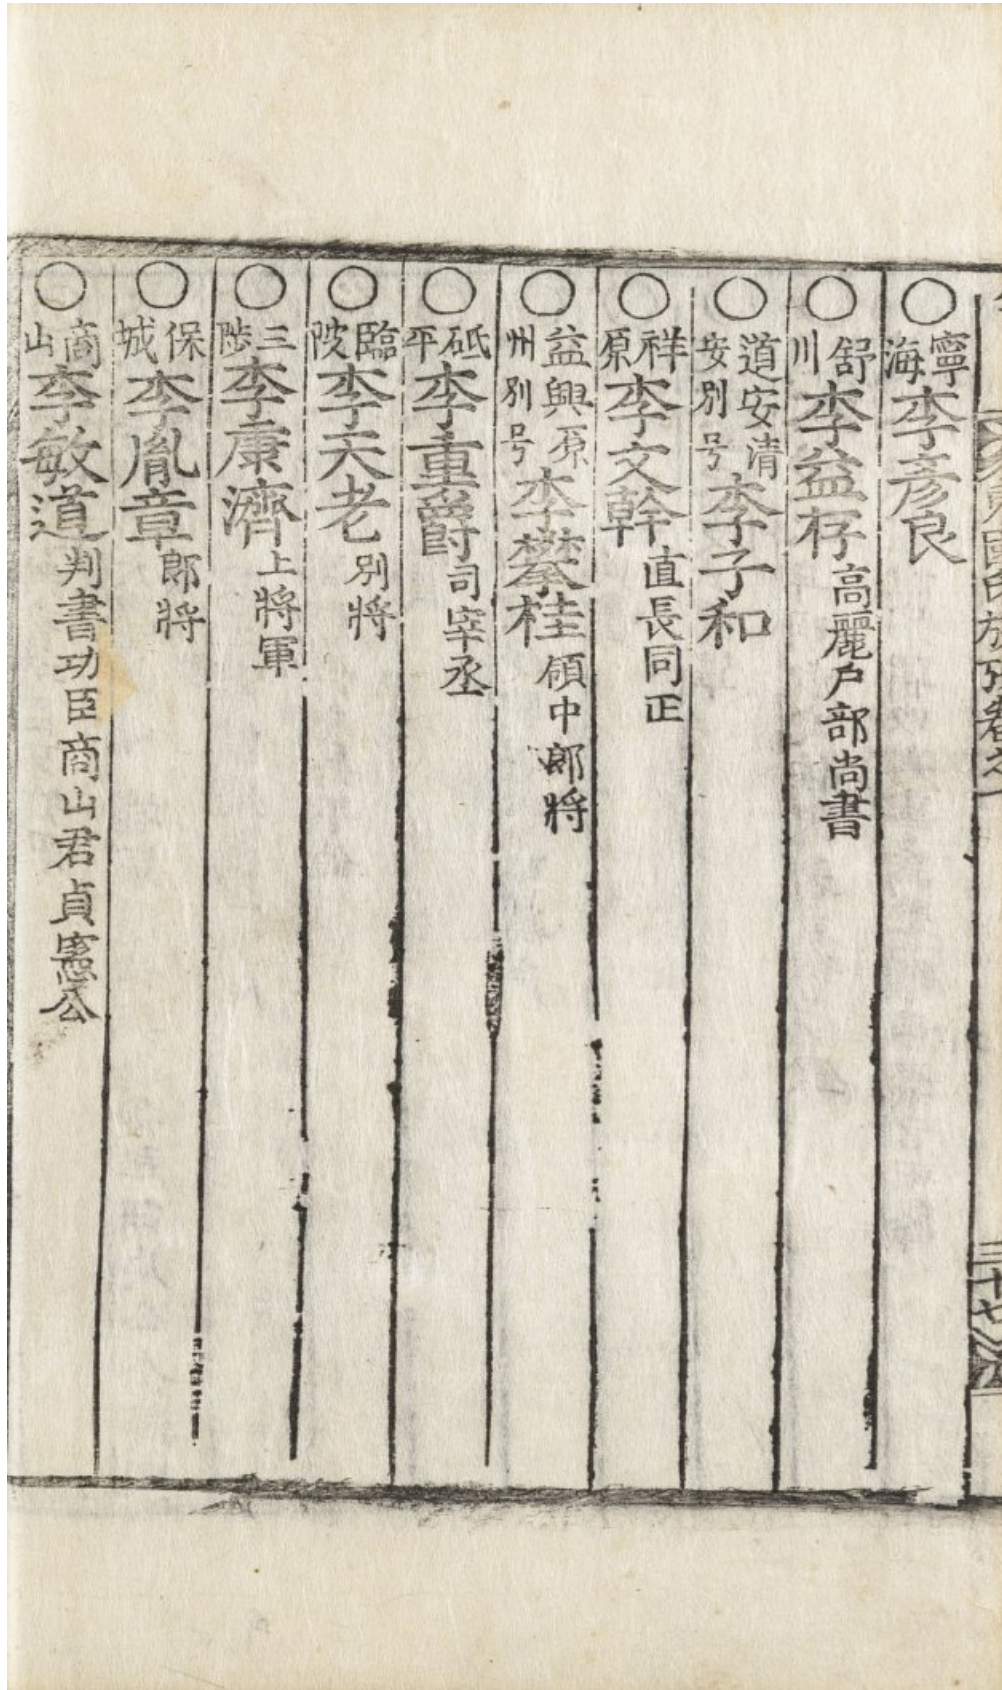 氏族攷卷之一
三十七
○寧海李彦良
○舒川李益存高麗户部尚書
○道安清安別号李子和
○祥原李文幹直長同正
○益興原州別号李攀桂領中郎將
○砥平李重爵司宰丞
○臨陂李天老別將
○三陟李康濟上將軍
○保城李胤章郎將
○商山李敏道判書功臣商山君貞憲公